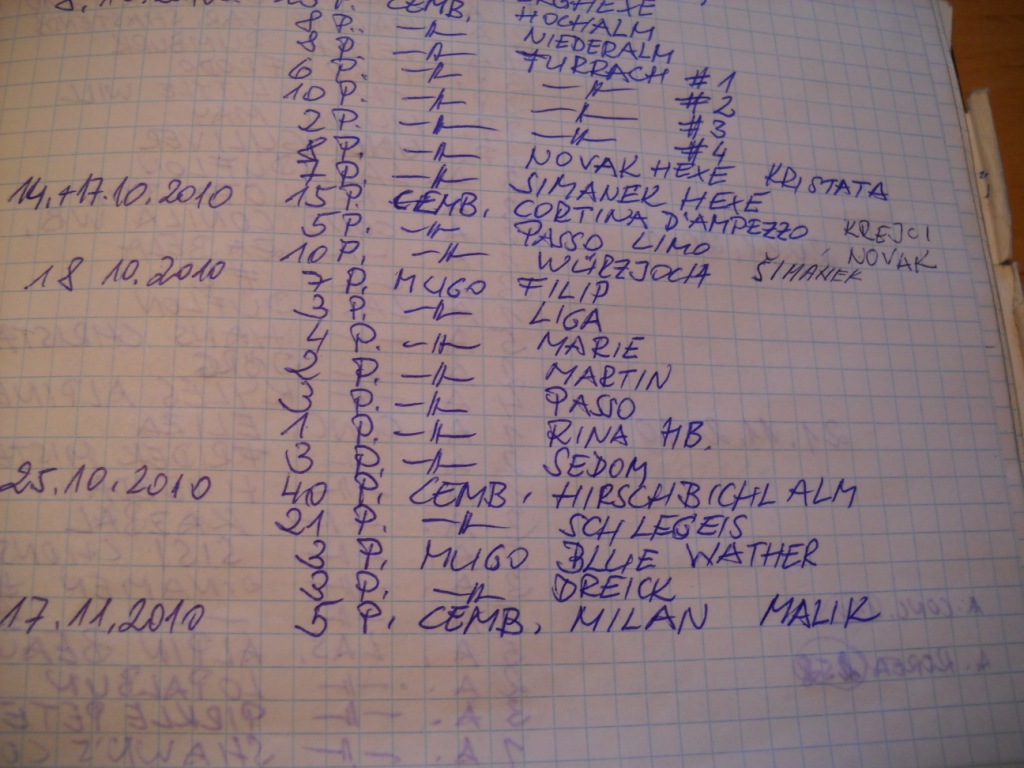 P. CEMB.
8 P. -〃- HOCHALM
8 P. -〃- NIEDERALM
6 P. -〃- TURRACH #1
10 P. -〃- -〃- #2
2 P. -〃- -〃- #3
8 P. -〃- -〃- #4
7 P. -〃- NOVAK HEXE KRISTATA
14.+17.10.2010 15 P. CEMB. SIMANEK HEXE
5 P. -〃- CORTINA D'AMPEZZO KREJCI
10 P. -〃- PASSO LIMO NOVAK
WÜRZJOCH ŠIMANEK
18 10.2010 7 P. MUGO FILIP
3 P. -〃- LIGA
4 P. -〃- MARIE
2 P. -〃- MARTIN
P. -〃- PASSO
1 P. -〃- RINA HB.
3 P. -〃- SEDOM
25.10.2010 40 P. CEMB. HIRSCHBICHL ALM
21 P. -〃- SCHLEGEIS
3 P. MUGO BLUE WATHER
3 P. -〃- DREICK
17.11.2010 5 P. CEMB. MILAN MALIK